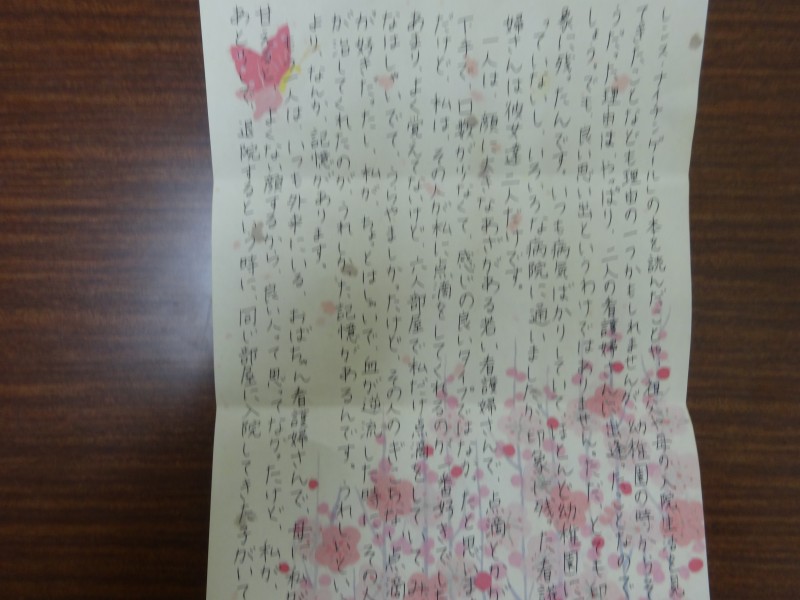 レンス・ナイチンゲール」の本を読んだことや、祖父・祖母の入院生活を見
てきたことなども理由の一つかもしれませんが、幼稚園の時からそ
うだった理由は、やっぱり、二人の看護婦さんに出逢ったことなので
しょう。でも良い思い出というわけではありません。ただ、とても印
象に残ったんです。いつも病気ばかりしていて、ほとんど幼稚園に
いっていないし、いろいろな病院に通いましたが、印象に残った看護
婦さんは彼女達二人だけです。
一人は、顔に大きなあざがある若い看護婦さんで、点滴とかが
下手で、口数が少なくて、感じの良いタイプではなかったと思います
だけど、私は、その人が私に点滴をしてくれるのが一番好きでした
あまりよく覚えてないけど、六人部屋で私だけ点滴をしていて、み
なはしゃいでて、うらやましかっただけど、その人のぎこちない点滴
が好きだったし、私が、ちょっとはしゃいで、血が逆流した時に、その人
が治してくれたのが、うれしかった記憶があるんです。うれしいとい
より、なんか、記憶があります。
人は、いつも外来にいる、おばちゃん看護婦さんで、母に私が
甘えると、よくない顔するから、良い人って思ってなかったけど、私が、
退院するという時に、同じ部屋に入院してきた子がいて